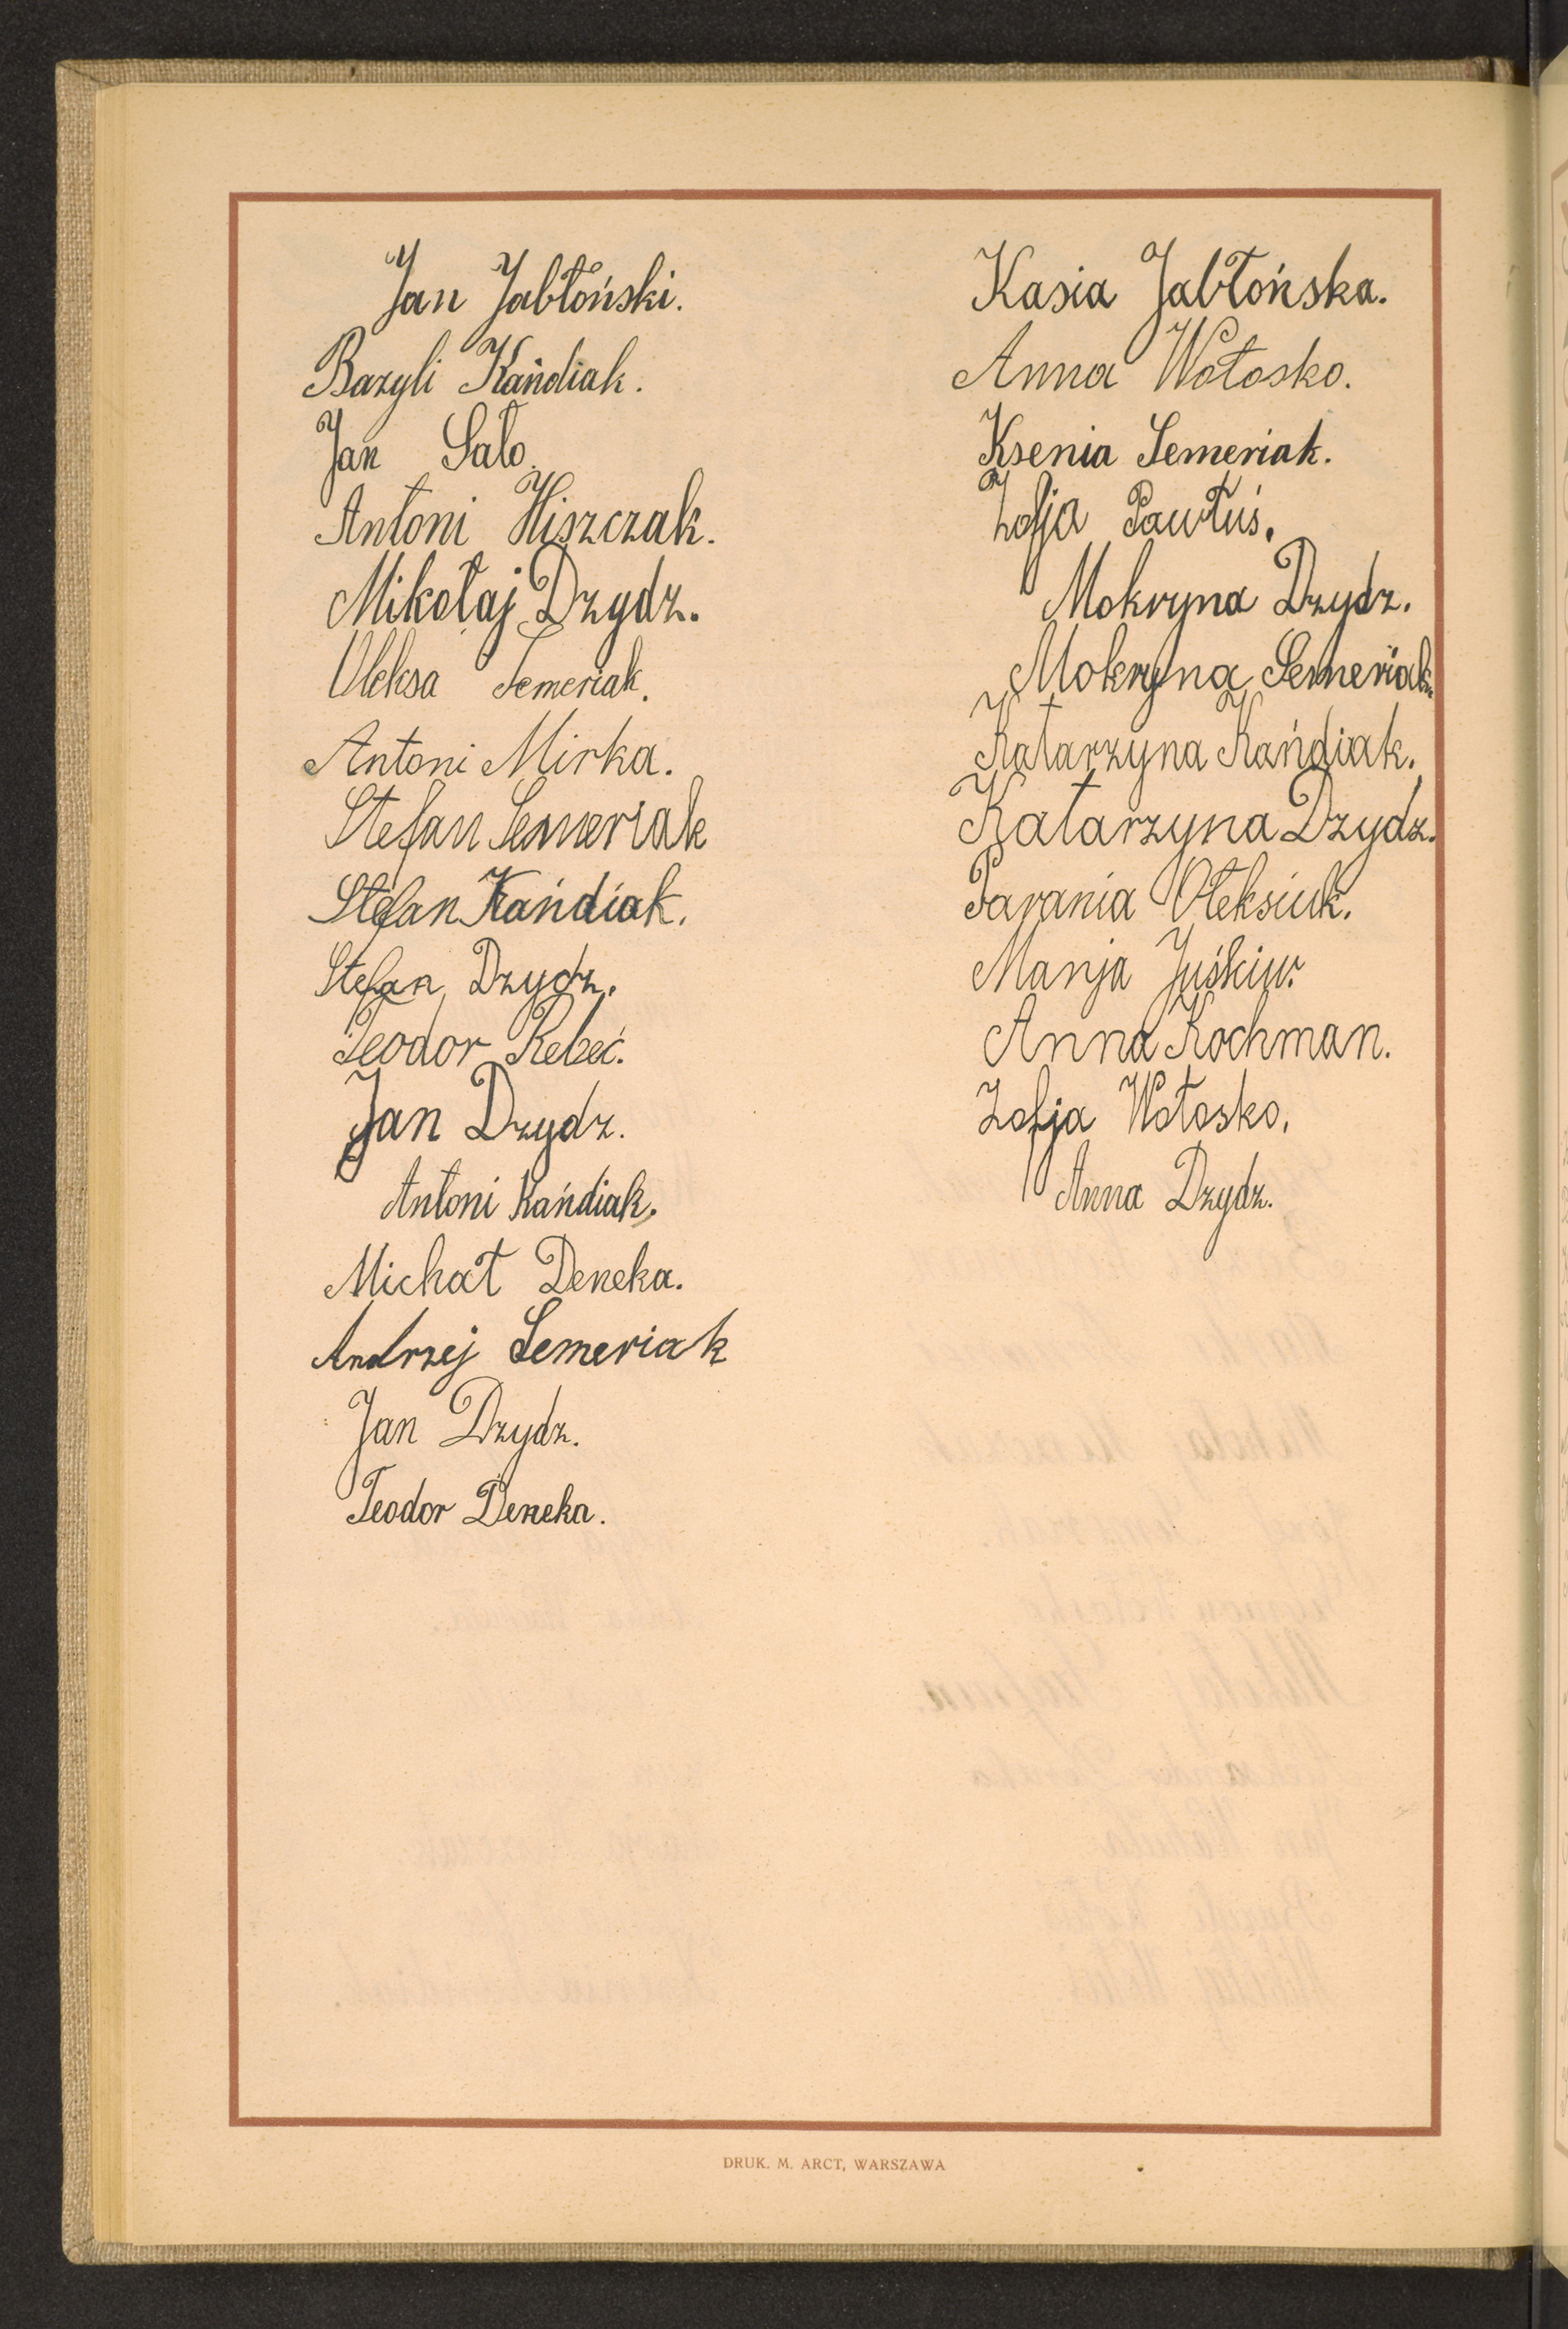 Jan Jabłoński.
Bazyli Kańdiak.
Jan Sało.
Antoni Hiszczak.
Mikołaj Dzydz.
Oleksa Semeriak.
Antoni Mirka.
Stefan Semeriak
Stefan Kańdiak.
Stefan Dzydz.
Teodor Rebeć.
Jan Dzydz.
Antoni Kańdiak.
Michał Deneka.
Andrzej Semeriak
Jan Dzydz.
Teodor Deneka.
Kasia Jabłońska.
Anna Wołosko.
Ksenia Semeriak.
Zofja Pawłuś.
Mokryna Dzydz.
Mokryna Semeriak.
Katarzyna Kańdiak.
Katarzyna Dzydz.
Parania Ołeksiuk.
Manja Juśkiw.
Anna Kochman.
Zofja Wołosko.
Anna Dzydz.
DRUK. M. ARCT, WARSZAWA